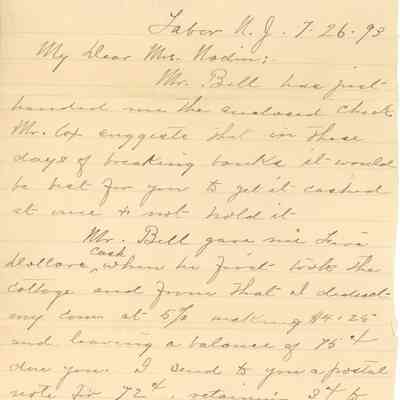 Tabor N.J. 7-26-93
My Dear Mrs. Nodin:
Mr. Bell has just
handed me the enclosed check
Mr. Cox suggests that in these
days of breaking banks it would
be best for you to get it cashed
at once & not hold it
Mr. Bell gave me five
dollars cash when he first took the
cottage and from that I deduct
my com at 5% making $4.25
and leaving a balance of 75¢
due you. I send to you a postal
note for 72¢, retaining 3¢ to